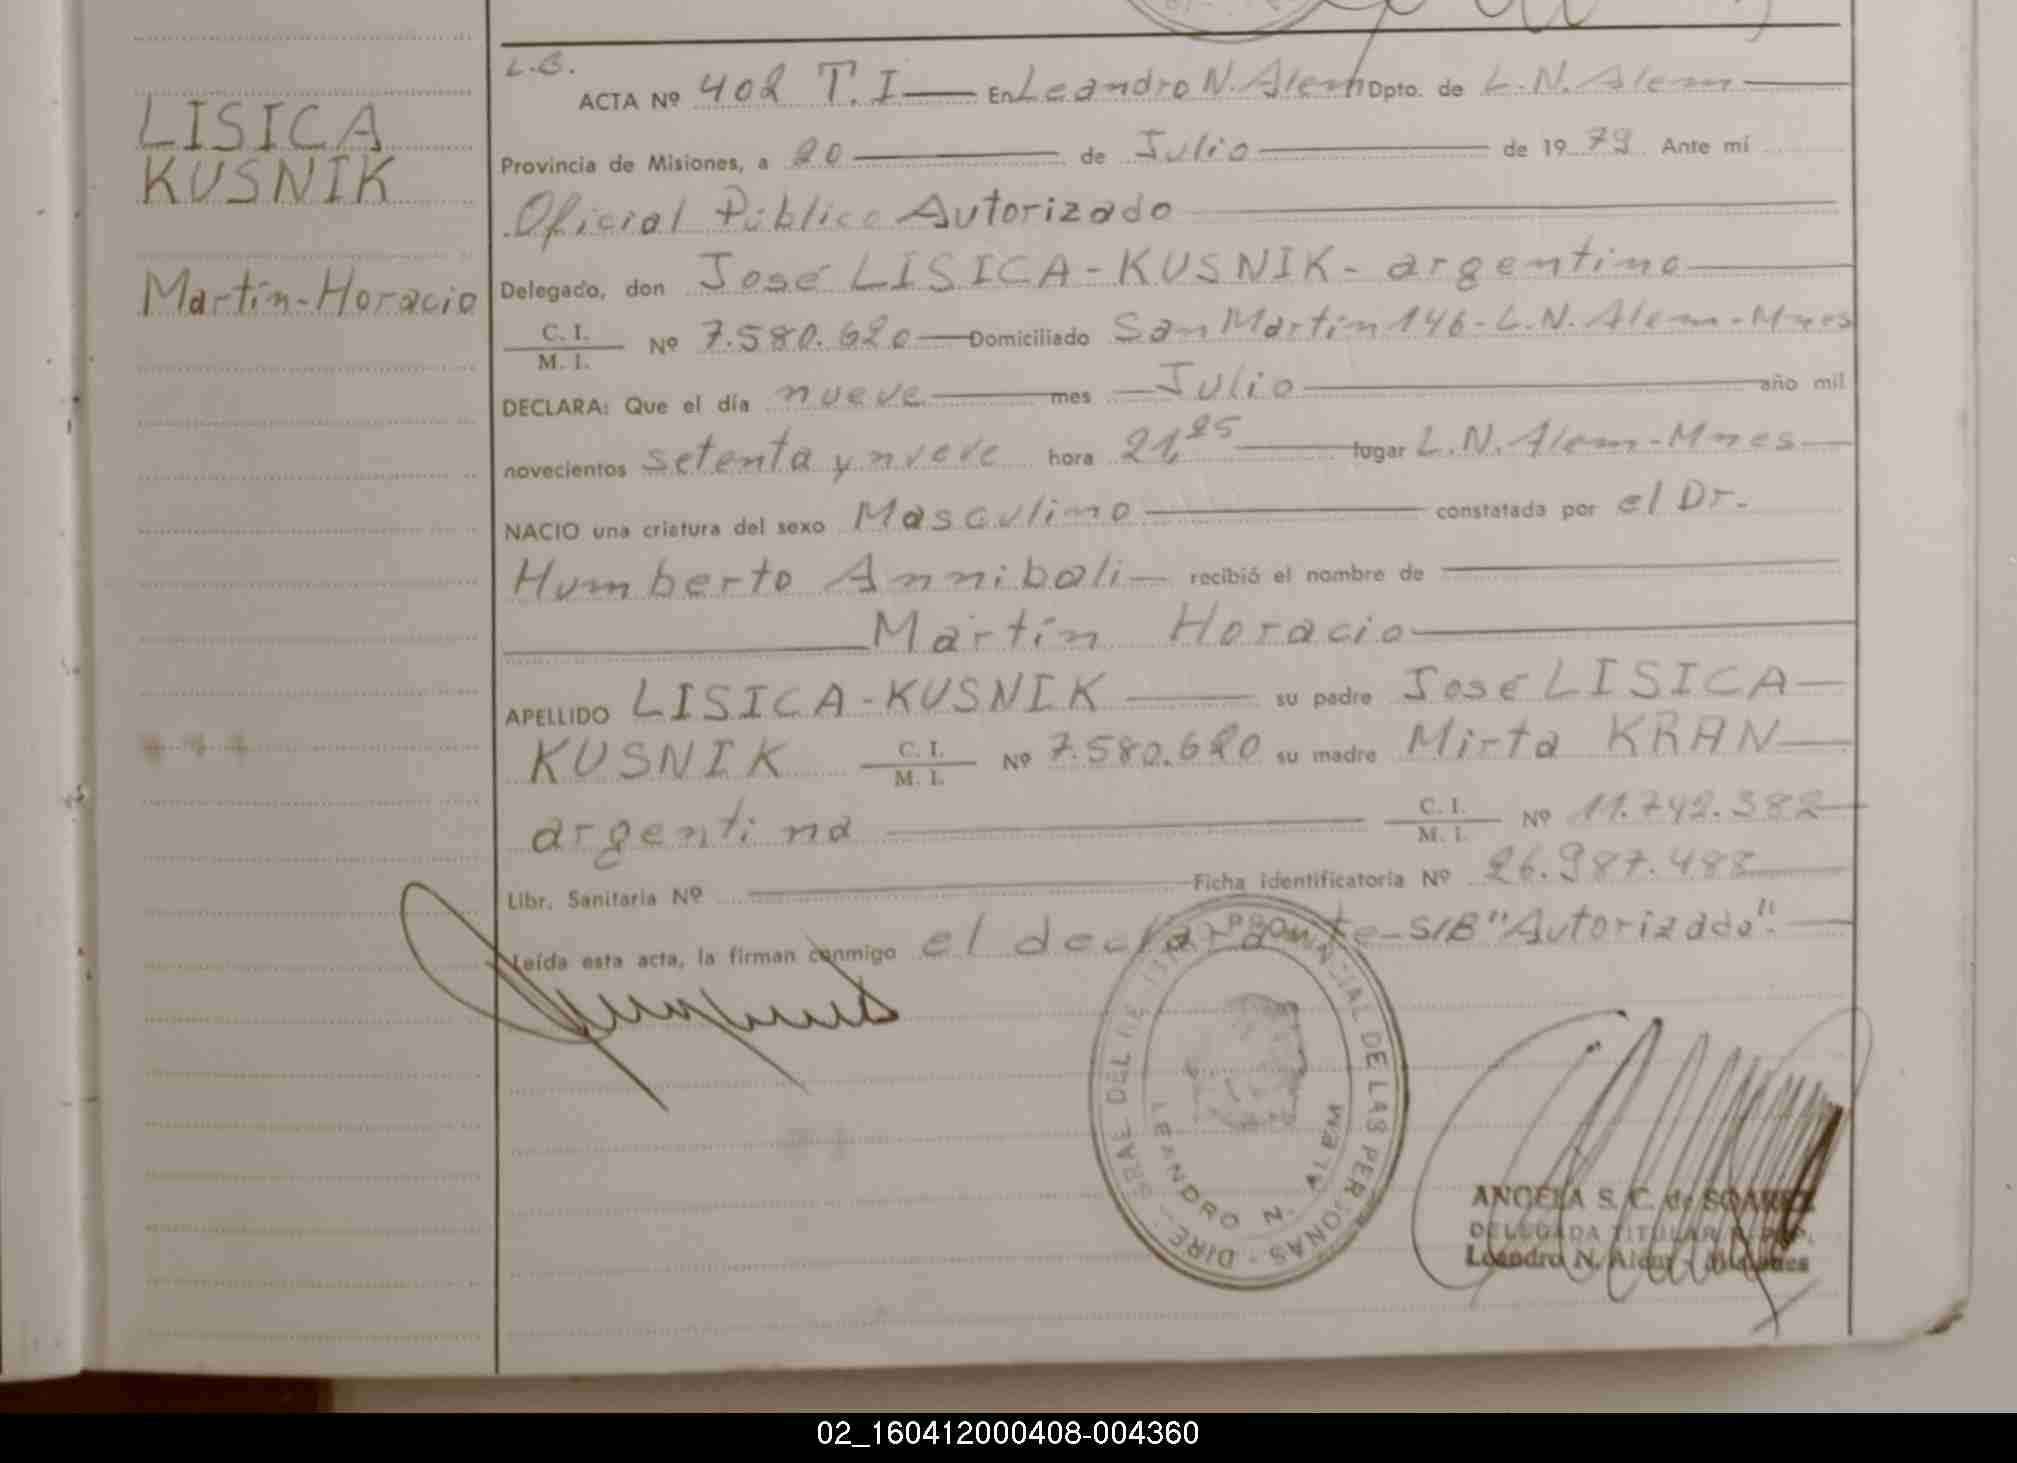 LISICA
KUSNIK
Martín-Horacio
L.C.
ACTA Nº 402 T.I — En Leandro N. Alem Dpto. de L.N. Alem
Provincia de Misiones, a 20 de Julio de 1979. Ante mí
Oficial Público Autorizado
Delegado, don José LISICA-KUSNIK- argentino
C. I.
M. I.
Nº 7.580.620 — Domiciliado San Martín 146-L.N. Alem-Mnes
DECLARA: Que el día nueve mes Julio año mil
novecientos setenta y nueve hora 21,25 lugar L.N. Alem-Mnes
NACIO una criatura del sexo Masculino constatada por el Dr.
Humberto Annibali — recibió el nombre de
Martín Horacio
APELLIDO LISICA-KUSNIK su padre José LISICA
KUSNIK C. I. M. I. Nº 7.580.620 su madre Mirta KRAN
argentina C. I. M. I. Nº 11.742.382
Libr. Sanitaria Nº Ficha identificatoria Nº 26.987.488
Leída esta acta, la firman conmigo el declarante-S/B "Autorizado".
PROVINCIAL DE LAS PERSONAS
LEANDRO N. ALEM
ANGELA S. C. de SOAREZ
DELEGADA TITULAR R. P. P.
Leandro N. Alem - Misiones
02_160412000408-004360